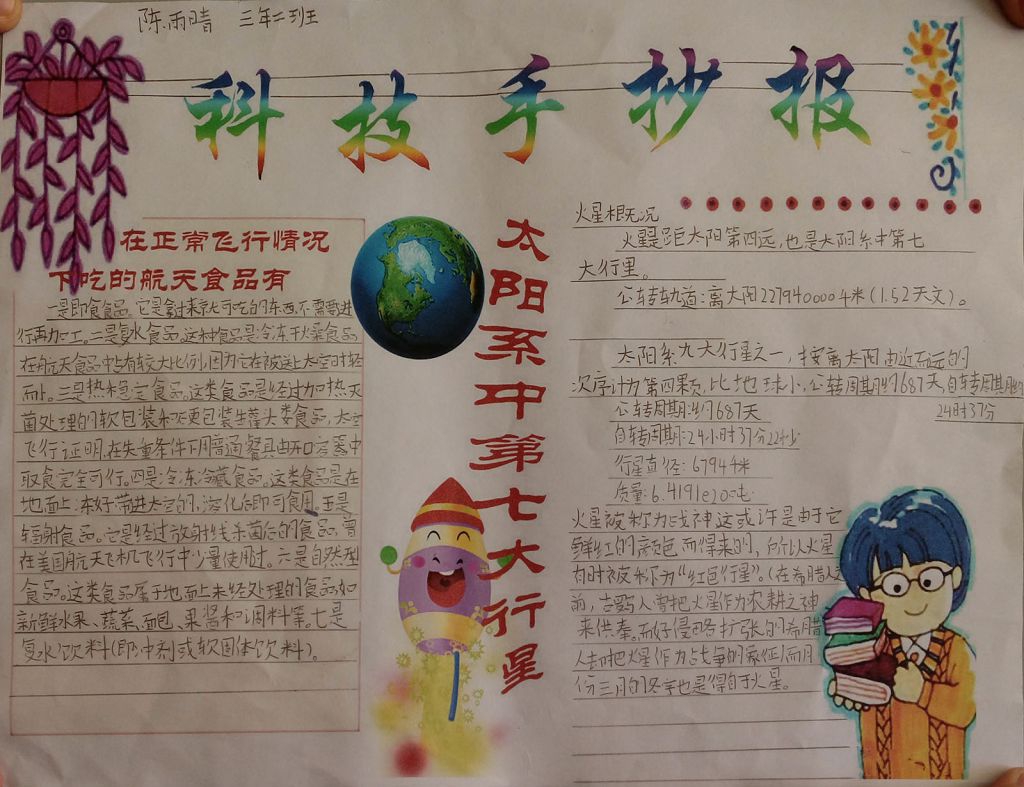 陈雨晴 三年二班
科技手抄报
在正常飞行情况
下吃的航天食品有
一是即食食品。它是拿过来就可吃的东西,不需要进
行再加工。二是复水食品。这种食品是冷冻干燥食品,
在航天食品中占有较大比例,因为它在被送上太空时轻
而小。三是热稳定食品。这类食品是经过加热灭
菌处理的软包装和硬包装罐头类食品,太空
飞行证明,在失重条件下用普通餐具由开口容器中
取食完全可行。四是冷冻冷藏食品。这类食品是在
地面上冻好带进太空的,溶化后即可食用。五是
辐射食品。它是经过放射线杀菌后的食品。曾
在美国航天飞机飞行中少量使用过。六是自然型
食品。这类食品属于地面上未经处理的食品如
新鲜水果、蔬菜、面包、果酱和调料等。七是
复水饮料(即冲剂或软固体饮料)。
太阳系中第七大行星
火星概况
火星是距太阳第四远,也是太阳系中第七
大行星。
公转轨道:离太阳227940000千米(1.52天文)。
太阳系九大行星之一,按离太阳由近而远的
次序计为第四颗,比地球小,公转周期约687天,自转周期约
24时37分
公转周期:约687天
自转周期:24小时37分22秒
行星直径:6794千米
质量:6.4191e20吨
火星被称为战神这或许是由于它
鲜红的颜色而得来的,所以火星
有时被称为“红色行星”。(在希腊人之
前,古罗人曾把火星作为农耕之神
来供奉。而好侵略扩张的希腊
人却把火星作为战争的象征)而月
份三月的名字也是得自于火星。